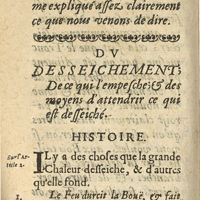 me expliqué assez clairement
ce que nous venons de dire.
DV
DESSEICHEMENT:
De ce qui l'empesche; & des
moyens d'attendrir ce qui
est desseiché.
HISTOIRE.
Sur l'Article 2.
IL y a des choses que la grande
Chaleur desseiche, & d'autrs
qu'elle fond.
1. Le Feu durcit la Bouë, & fait